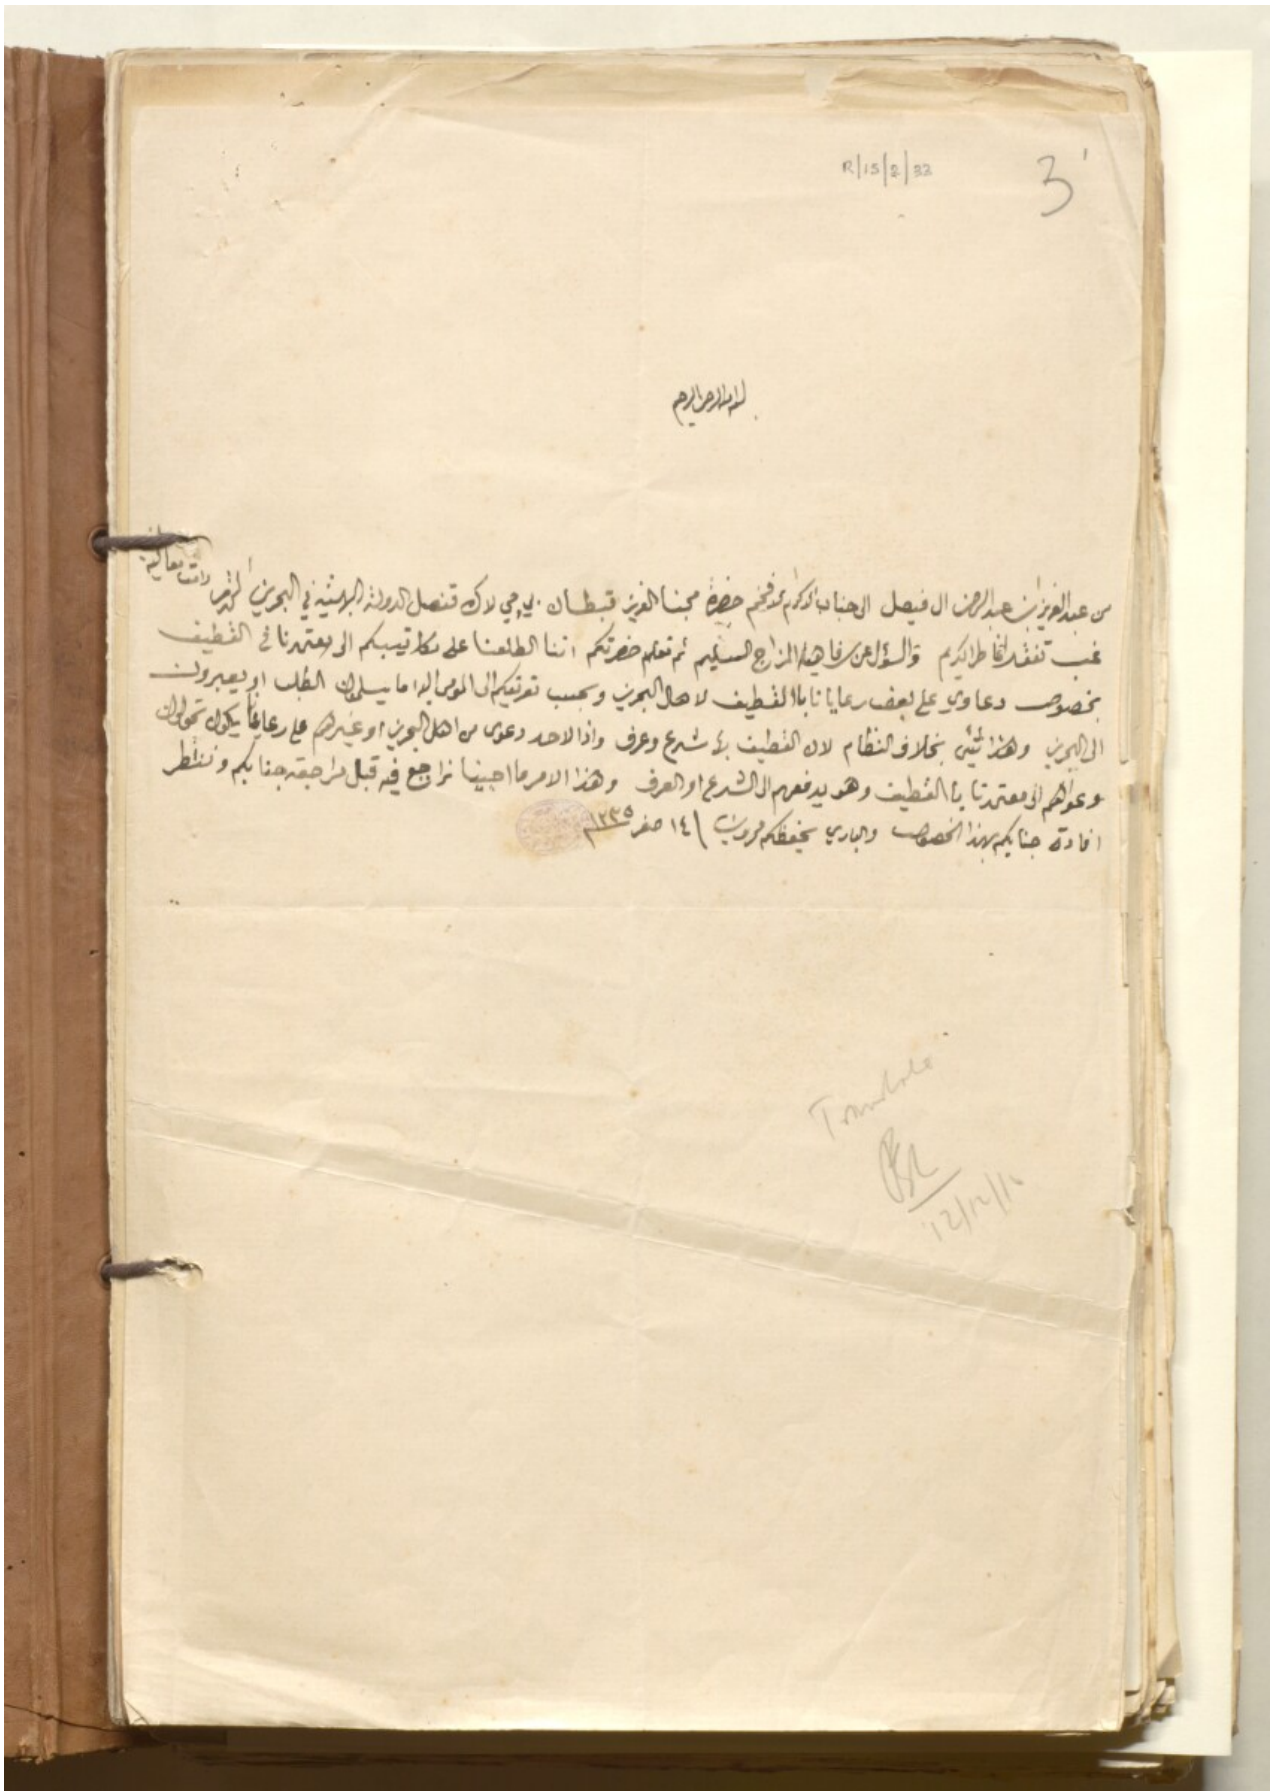 R/15/2/33
3
بسم الله الرحمن الرحيم
من عبد العزيز بن عبد الرحمن ال فيصل الى جناب الاكرام الافخم حضرة محبنا العزيز قبطان بي جي لاك قنصل الدولة البهية في البحرين المحترم دامت معاليه
غب تفقد الخاطر الكريم والسؤال عن رفاهية المزاج السليم ثم نعلم حضرتكم اننا اطلعنا على مكاتيبكم الى معتمدنا في القطيف
بخصوص دعاوي على بعض رعايانا بالقطيف لاهل البحرين وبحسب تعريفكم الى المومى اليه اما يسلمون الطلب او يعبرون
الى البحرين وهذا شئ بخلاف النظام لان القطيف بلد شرع وعرف واذا لاحد دعوى من اهل البحرين او غيرهم على رعايانا يكون تحولون
دعواهم الى معتمدنا بالقطيف وهو يدفعهم الى الشرع او العرف وهذا الامر ما احبينا نراجع فيه قبل مراجعة جنابكم وننتظر
افادة جنابكم بهذا الخصوص والباري يحفظكم محروسين ١٤ صفر ١٣٣٥
Translate
12/12/16